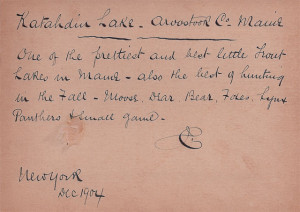 Katahdin Lake - Aroostook Co. Maine
One of the prettiest and best little Trout
Lakes in Maine - also the best of hunting
in the Fall - Moose, Dear Bear, Foxes, Lynx
Panthers & Small Game -
New York
Dec 1904